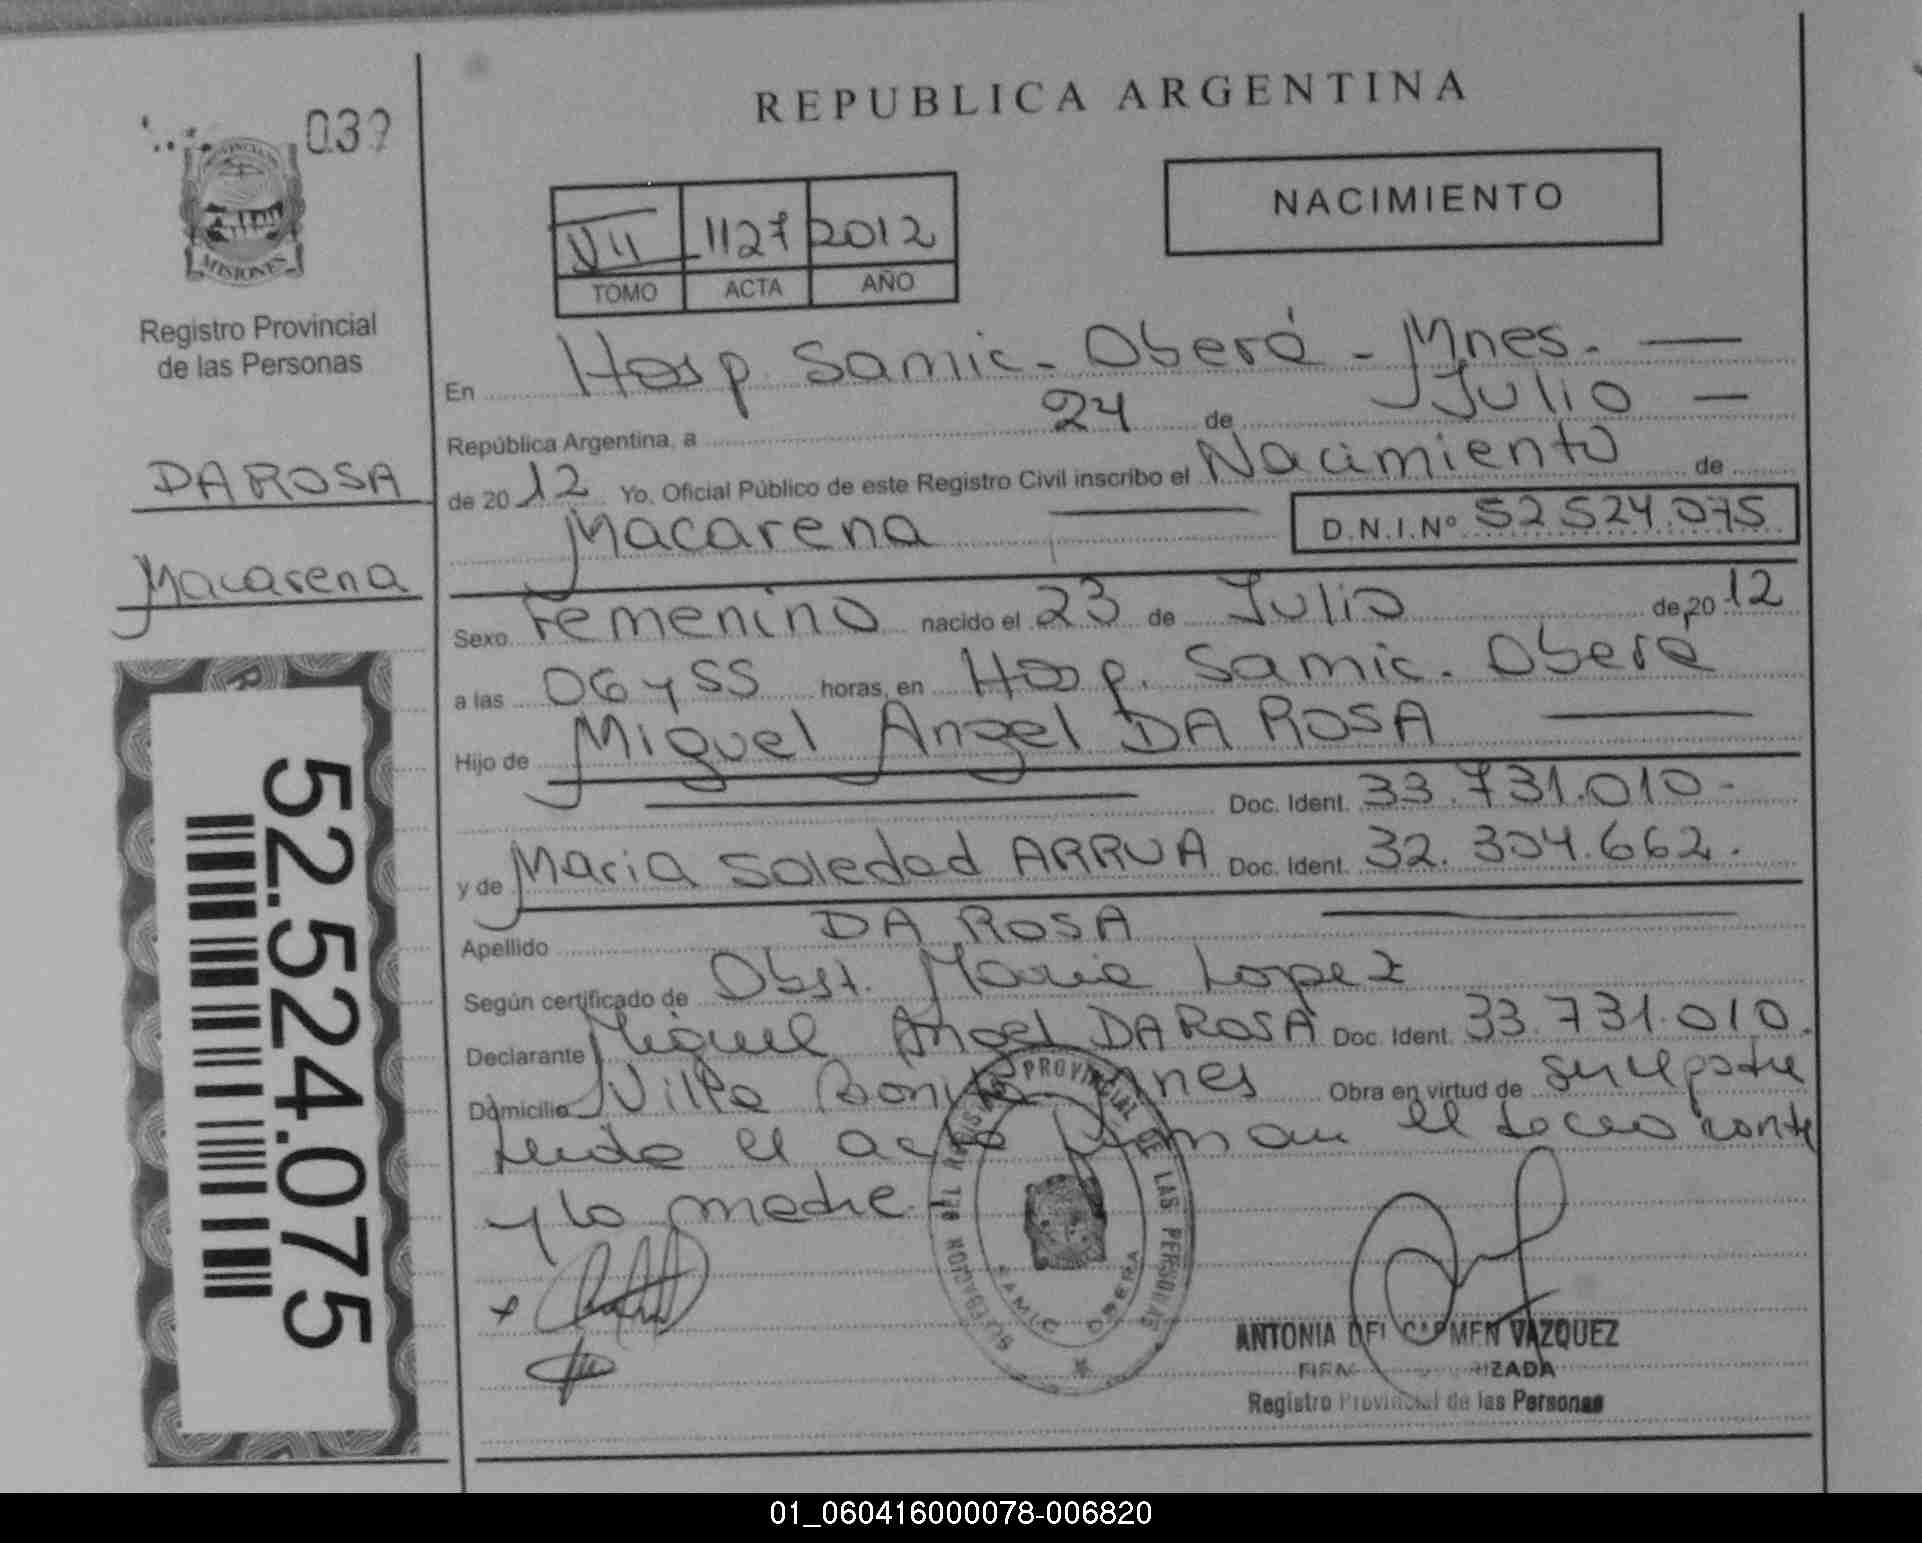 039
PROVINCIA DE
MISIONES
Registro Provincial
de las Personas
DA ROSA
Macarena
52.524.075
REPUBLICA ARGENTINA
NACIMIENTO
VII 1127 2012
TOMO ACTA AÑO
En Hosp. Samic. - Oberá - Mnes. -
República Argentina, a 24 de Julio -
de 20 12 Yo, Oficial Público de este Registro Civil inscribo el Nacimiento de
Macarena D.N.I.Nº 52.524.075
Sexo Femenino nacido el 23 de Julio de 20 12
a las 06 y 55 horas, en Hosp. Samic. Oberá
Hijo de Miguel Angel DA ROSA
Doc. Ident. 33.731.010.-
y de Maria Soledad ARRUA Doc. Ident. 32.304.662.
Apellido DA ROSA
Según certificado de Obst. Maria Lopez
Declarante Miguel Angel DA ROSA Doc. Ident. 33.731.010.
Domicilio Villa Bonita Mnes Obra en virtud de ser el padre
Leida el acta firman el declarante
y la madre.
DELEGACION DEL REGISTRO PROVINCIAL DE LAS PERSONAS
SAMIC OBERA
ANTONIA DEL CARMEN VAZQUEZ
FIRMA AUTORIZADA
Registro Provincial de las Personas
01_060416000078-006820